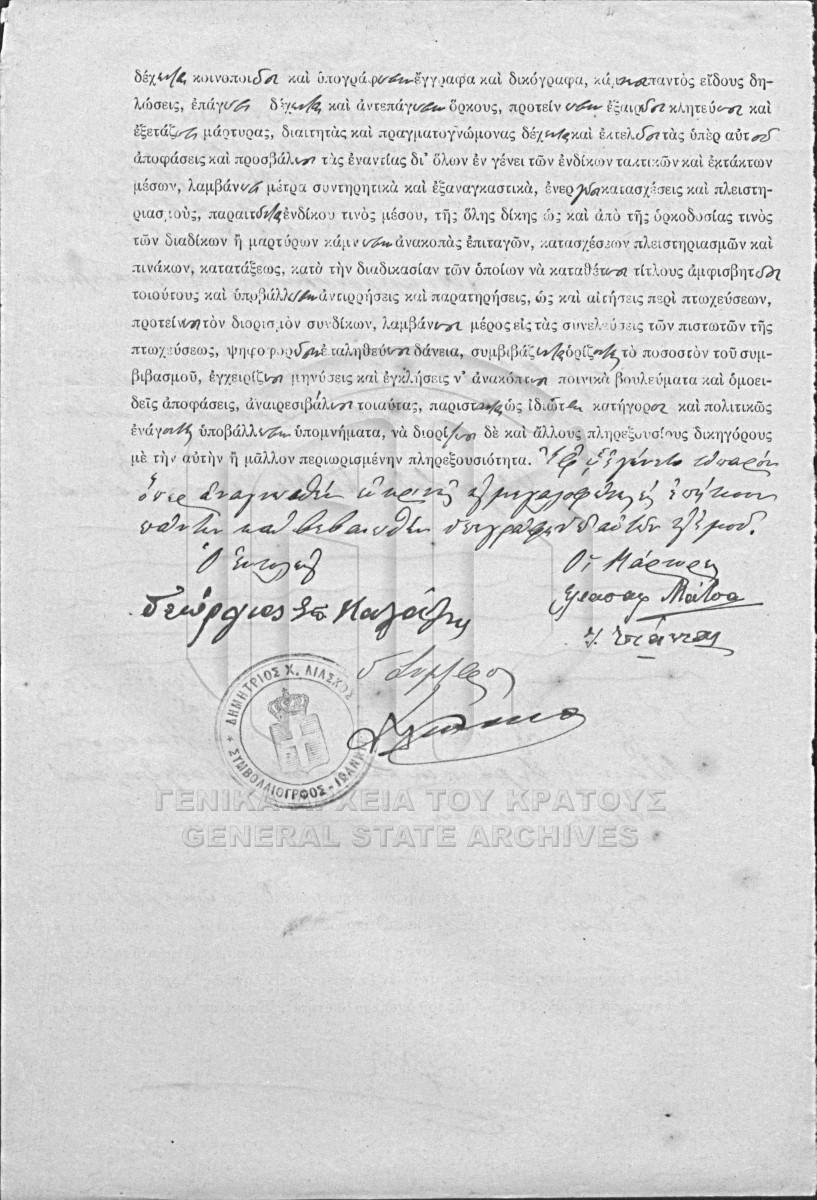 δέχηται κοινοποιῇ καὶ ὑπογράφῃ ἔγγραφα καὶ δικόγραφα, κάμνῃ παντὸς εἴδους δη-
λώσεις, ἐπάγῃ δέχηται καὶ ἀντεπάγῃ ὅρκους, προτείνῃ ἐξαιρῇ κλητεύῃ καὶ
ἐξετάζῃ μάρτυρας, διαιτητὰς καὶ πραγματογνώμονας δέχηται καὶ ἐκτελῇ τὰς ὑπὲρ αὐτοῦ
ἀποφάσεις καὶ προσβάλῃ τὰς ἐναντίας δι' ὅλων ἐν γένει τῶν ἐνδίκων τακτικῶν καὶ ἐκτάκτων
μέσων, λαμβάνῃ μέτρα συντηρητικὰ καὶ ἐξαναγκαστικὰ, ἐνεργῇ κατασχέσεις καὶ πλειστη-
ριασμοὺς, παραιτῆται ἐνδίκου τινὸς μέσου, τῆς ὅλης δίκης ὡς καὶ ἀπὸ τῆς ὁρκοδοσίας τινὸς
τῶν διαδίκων ἢ μαρτύρων κάμνῃ ἀνακοπὰς ἐπιταγῶν, κατασχέσεων πλειστηριασμῶν καὶ
πινάκων, κατατάξεως, κατὰ τὴν διαδικασίαν τῶν ὁποίων νὰ καταθέτῃ τίτλους ἀμφισβητῇ
τοιούτους καὶ ὑποβάλλῃ ἀντιρρήσεις καὶ παρατηρήσεις, ὡς καὶ αἰτήσεις περὶ πτωχεύσεων,
προτείνῃ τὸν διορισμὸν συνδίκων, λαμβάνῃ μέρος εἰς τὰς συνελεύσεις τῶν πιστωτῶν τῆς
πτωχεύσεως, ψηφοφορῇ ἐπαληθεύῃ δάνεια, συμβιβάζηται ὁρίζῃ τὸ ποσοστὸν τοῦ συμ-
βιβασμοῦ, ἐγχειρίζῃ μηνύσεις καὶ ἐγκλήσεις ν' ἀνακόπτῃ ποινικὰ βουλεύματα καὶ ὁμοει-
δεῖς ἀποφάσεις, ἀναιρεσιβάλῃ τοιαύτας, παρίσταται ὡς ἰδιώτης κατήγορος καὶ πολιτικῶς
ἐνάγῃ ὑποβάλλῃ ὑπομνήματα, νὰ διορίζῃ δὲ καὶ ἄλλους πληρεξουσίους δικηγόρους
μὲ τὴν αὐτὴν ἢ μᾶλλον περιωρισμένην πληρεξουσιότητα. Ἐφ' ᾧ ἐγένετο τὸ παρὸν
ὅπερ ἀναγνωσθὲν εὐκρινῶς καὶ μεγαλοφώνως εἰς ἐπήκοον
πάντων καὶ βεβαιωθὲν ὑπεγράφη παρ' αὐτῶν καὶ ἐμοῦ.
Ὁ Ἐντολεὺς Οἱ Μάρτυρες
Γεώργιος Σπ
Μάτσα
ὁ Συμβ/φος
ΔΗΜΗΤΡΙΟΣ Χ. ΛΙΑΣΚΟΣ
ΣΥΜΒΟΛΑΙΟΓΡΦΟΣ - ΙΩΑΝΝΙ
ΓΕΝΙΚΑ ΑΡΧΕΙΑ ΤΟΥ ΚΡΑΤΟΥΣ
GENERAL STATE ARCHIVES